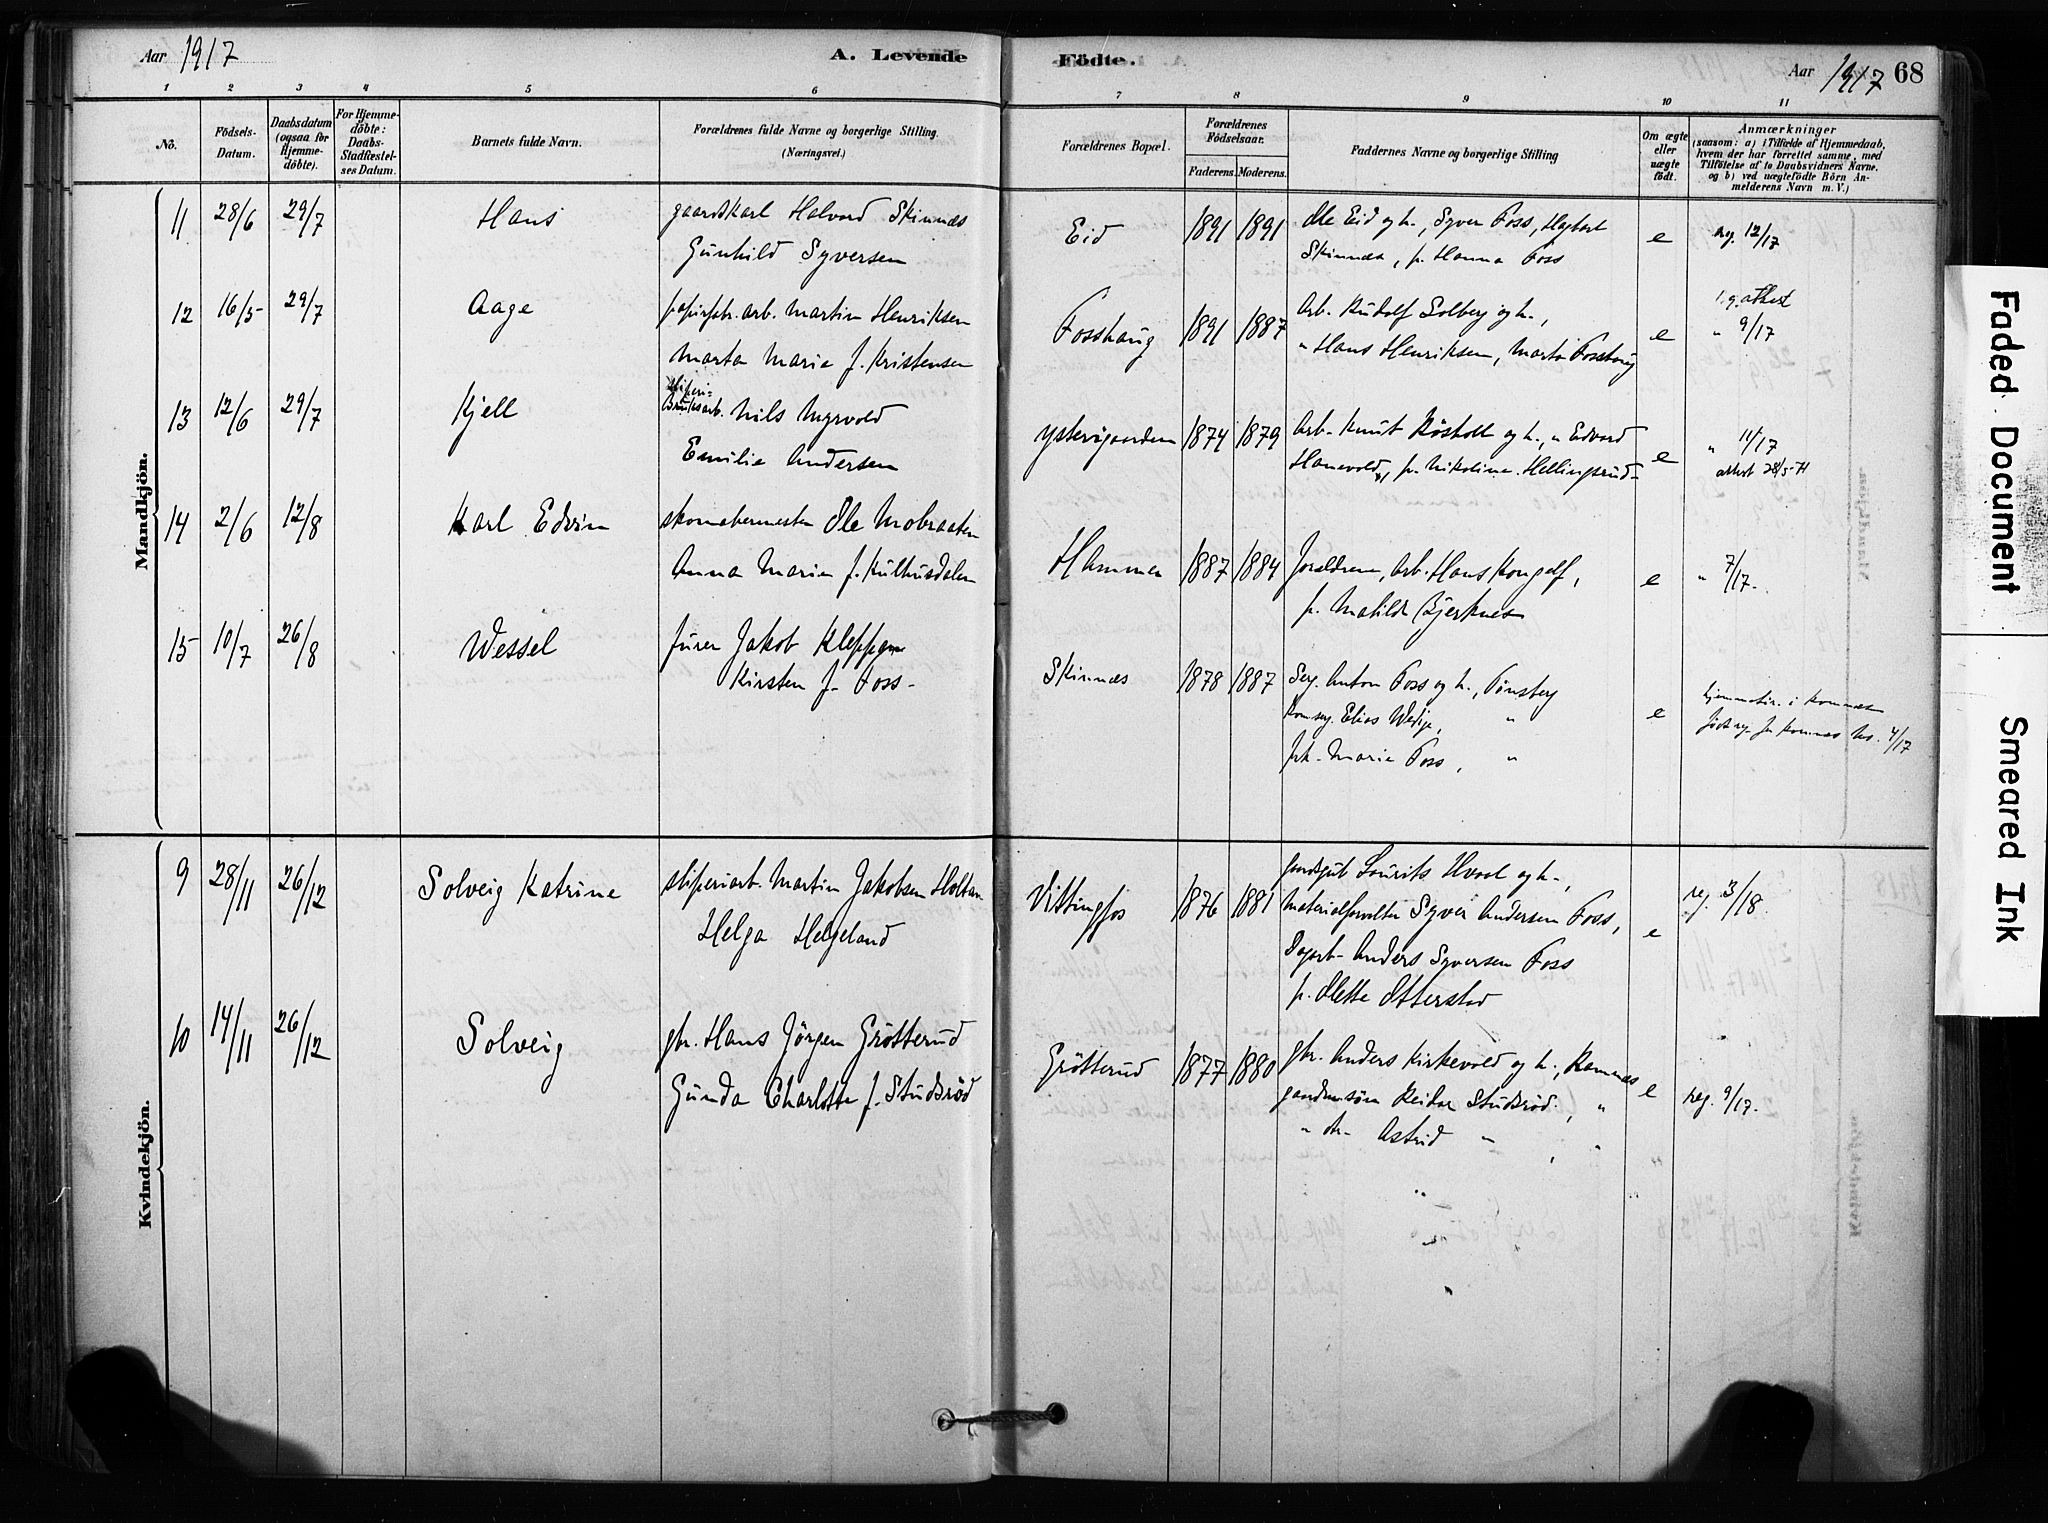 Aar 1917
A. Levende
Födte.
Aar 1917 68
1 2 3 4 5 6 7 8 9 10 11
No.
Födsels-
Datum.
Daabsdatum
(ogsaa for
Hjemme-
döbte).
For Hjemme-
döbte:
Daabs-
Stadfæstel-
ses Datum.
Barnets fulde Navn.
Forældrenes fulde Navne og borgerlige Stilling.
(Næringsvei.)
Forældrenes Bopæl.
Forældrenes
Födselsaar.
Faderens. Moderens.
Faddernes Navne og borgerlige Stilling
Om ægte
eller
uægte
födt.
Anmærkninger
(saasom: a) i Tilfælde af Hjemmedaab,
hvem der har forrettet samme, med
Tilföielse af to Daabsvidners Navne,
og b) ved uægtefödte Börn An-
melderens Navn m. V.)
Mandkjön.
11 28/6 29/7 Hans gaardskarl Halvord Skinnæs
Gunhild Syversen
Eid 1891 1891 Ole Eid og h., Syver Foss, Hagbart
Skinnæs, p. Hanna Foss
e reg. 12/17
12 16/5 29/7 Aage papirfabr. arb. Martin Henriksen
Marta Marie f. Kristensen
Fosshaug 1891 1887 Arb. Rudolf Solberg og h.,
" Hans Henriksen, Marta Fosshaug
e attest
" 9/17
13 12/6 29/7 Kjell sliperi-
Bruksarb. Nils Myrvold
Emilie Andersen
1874 1879 Arb. Knut og h., " Edvard
Hanevold, p. Nikoline Hellingsrud
e " 11/17
attest 28/5-71
14 2/6 12/8 Karl Edvin skomakermester Ole Mobraaten
Anna Marie f. Kulhusdalen
Hammer 1887 1884 Foreldrene, Arb. Hans Kongelf,
p. Matilde Bjerknes
e " 7/17
15 10/7 26/8 Wessel Jakob Kleppen
Kirsten f. Foss
Skinnæs 1878 1887 Serg. Anton Foss og h., Tønsberg
Elias "
frk. Marie Foss, "
e hjemmehør. i Ramnæs
4/17
Kvindekjön.
9 28/11 26/12 Solveig Katrine sliperiarb. Martin Jakobsen Holtan
Helga Helgeland
Vittingfos 1876 1881 Laurits Hvaal og h.,
Materialforvalter Syver Andersen Foss,
Dagarb. Anders Syversen Foss
p. Mette Otterstad
e reg. 3/18
10 14/11 26/12 Solveig gbr. Hans Jörgen Grötterud
Gunda Charlotte f. Studsröd
Grötterud 1877 1880 gbr. Anders Kirkevold og h., Ramnæs
gaardmansön Reidar Studsröd, "
" dtr. Astrid " , "
e reg. 9/17.
Faded Document
Smeared Ink